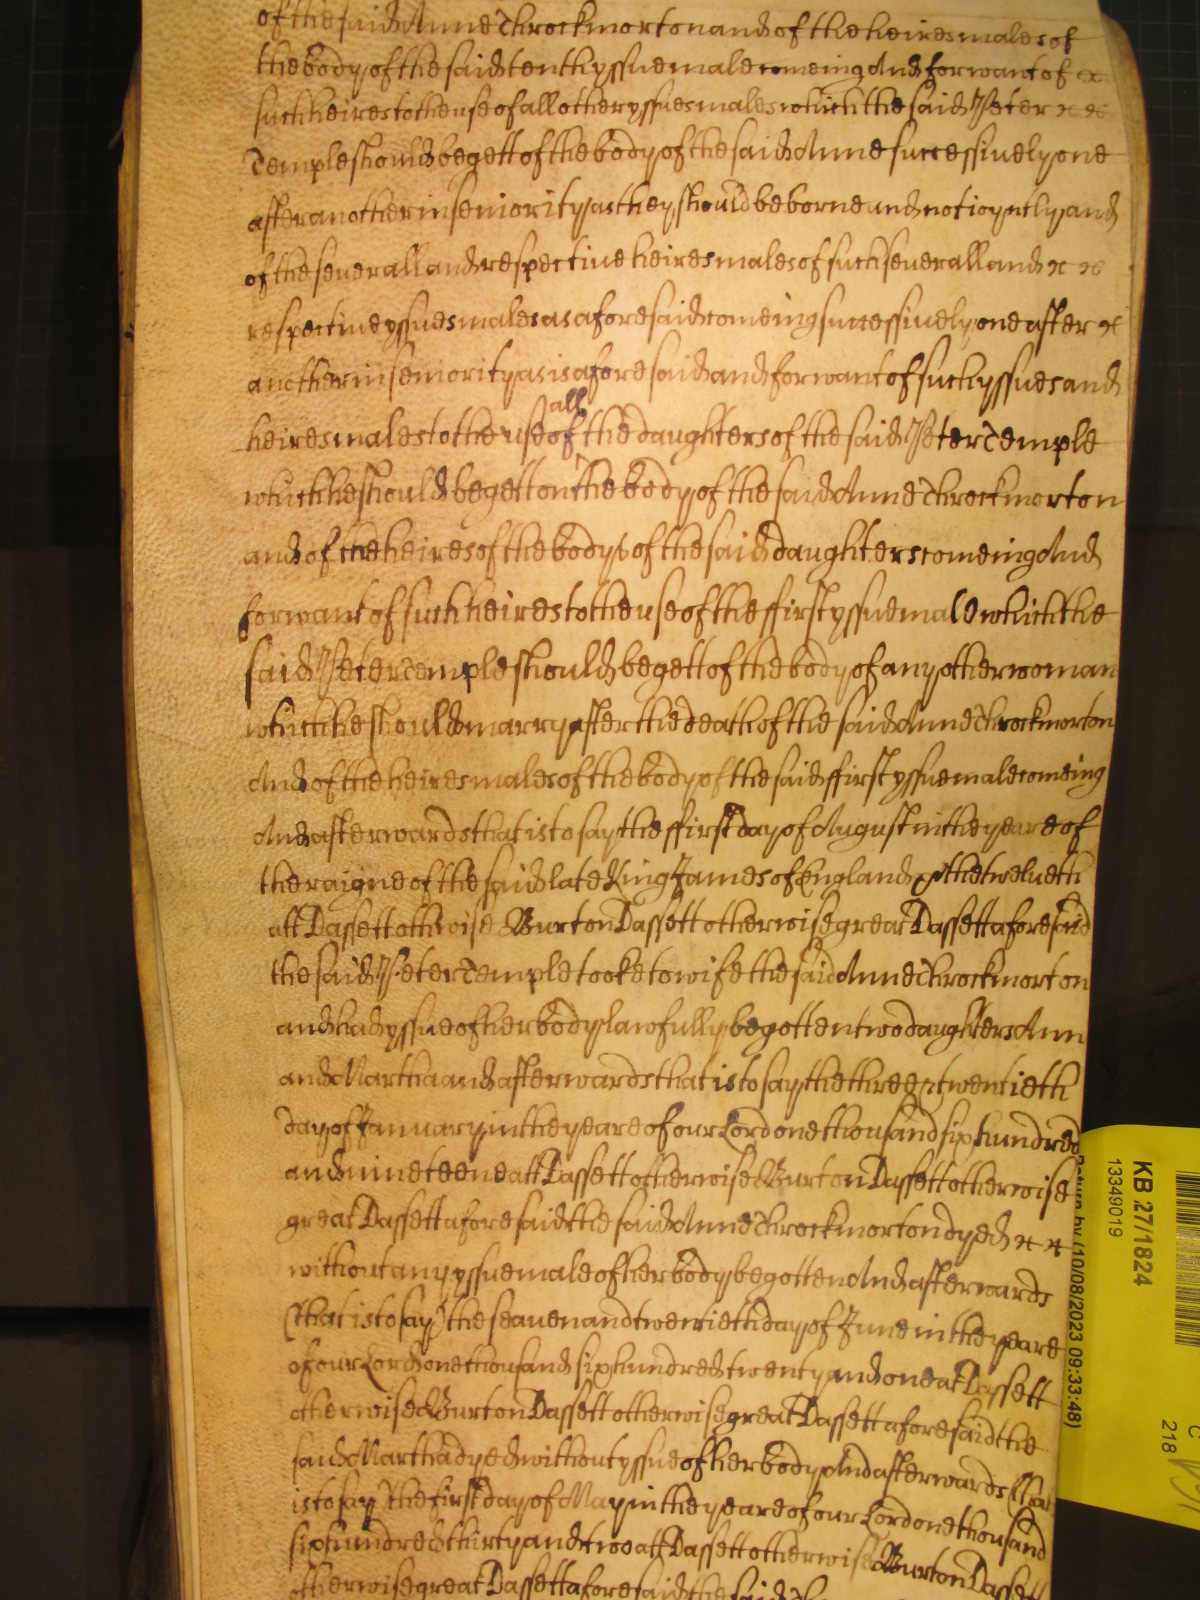 of the said Anne Throckmorton and of the heires males of
the body of the said tenth yssue male comeing And for want of
such heires to the use of all other yssues males which the said Peter
Temple should begett of the body of the said Anne successively one
after another in seniority as they should be borne and not ioyntly and
of the severall and respective heires males of such severall and
respective yssues males as aforesaid comeing successively one after
another in seniority as is aforesaid and for want of such yssues and
heires males to the use of all the daughters of the said Peter Temple
which he should begett on the body of the said Anne Throckmorton
and of the heires of the bodys of the said daughters comeing And
for want of such heires to the use of the ffirst yssue male which the
said Peter Temple should begett of the body of any other woman
which he should marry after the death of the said Anne Throckmorton
And of the heires males of the body of the said ffirst yssue male comeing
And afterwards that is to say the ffirst day of August in the yeare of
the raigne of the said late King James of England &c the twelveth
att Dassett otherwise Burton Dassett otherwise great Dassett aforesaid
the said Peter Temple tooke to wife the said Anne Throckmorton
and had yssue of her body lawfully begotten two daughters Ann
and Martha and afterwards that is to say the three & twentieth
day of January in the yeare of our Lord one thousand six hundred
and nineteene att Dassett otherwise Burton Dassett otherwise
great Dassett aforesaid the said Anne Throckmorton dyed
without any yssue male of her body begotten And afterwards
(that is to say) the seaven and twentieth day of June in the yeare
of our Lord one thousand six hundred twenty and one at Dassett
otherwise Burton Dassett otherwise great Dassett aforesaid the
said Martha dyed without yssue of her body And afterwards (that
is to say) the first day of May in the yeare of our Lord one thousand
six hundred thirty and two att Dassett otherwise Burton Dassett
otherwise great Dassett aforesaid the said
KB 27/1824
13349019
Return by (10/08/2023 09:33:48)
218